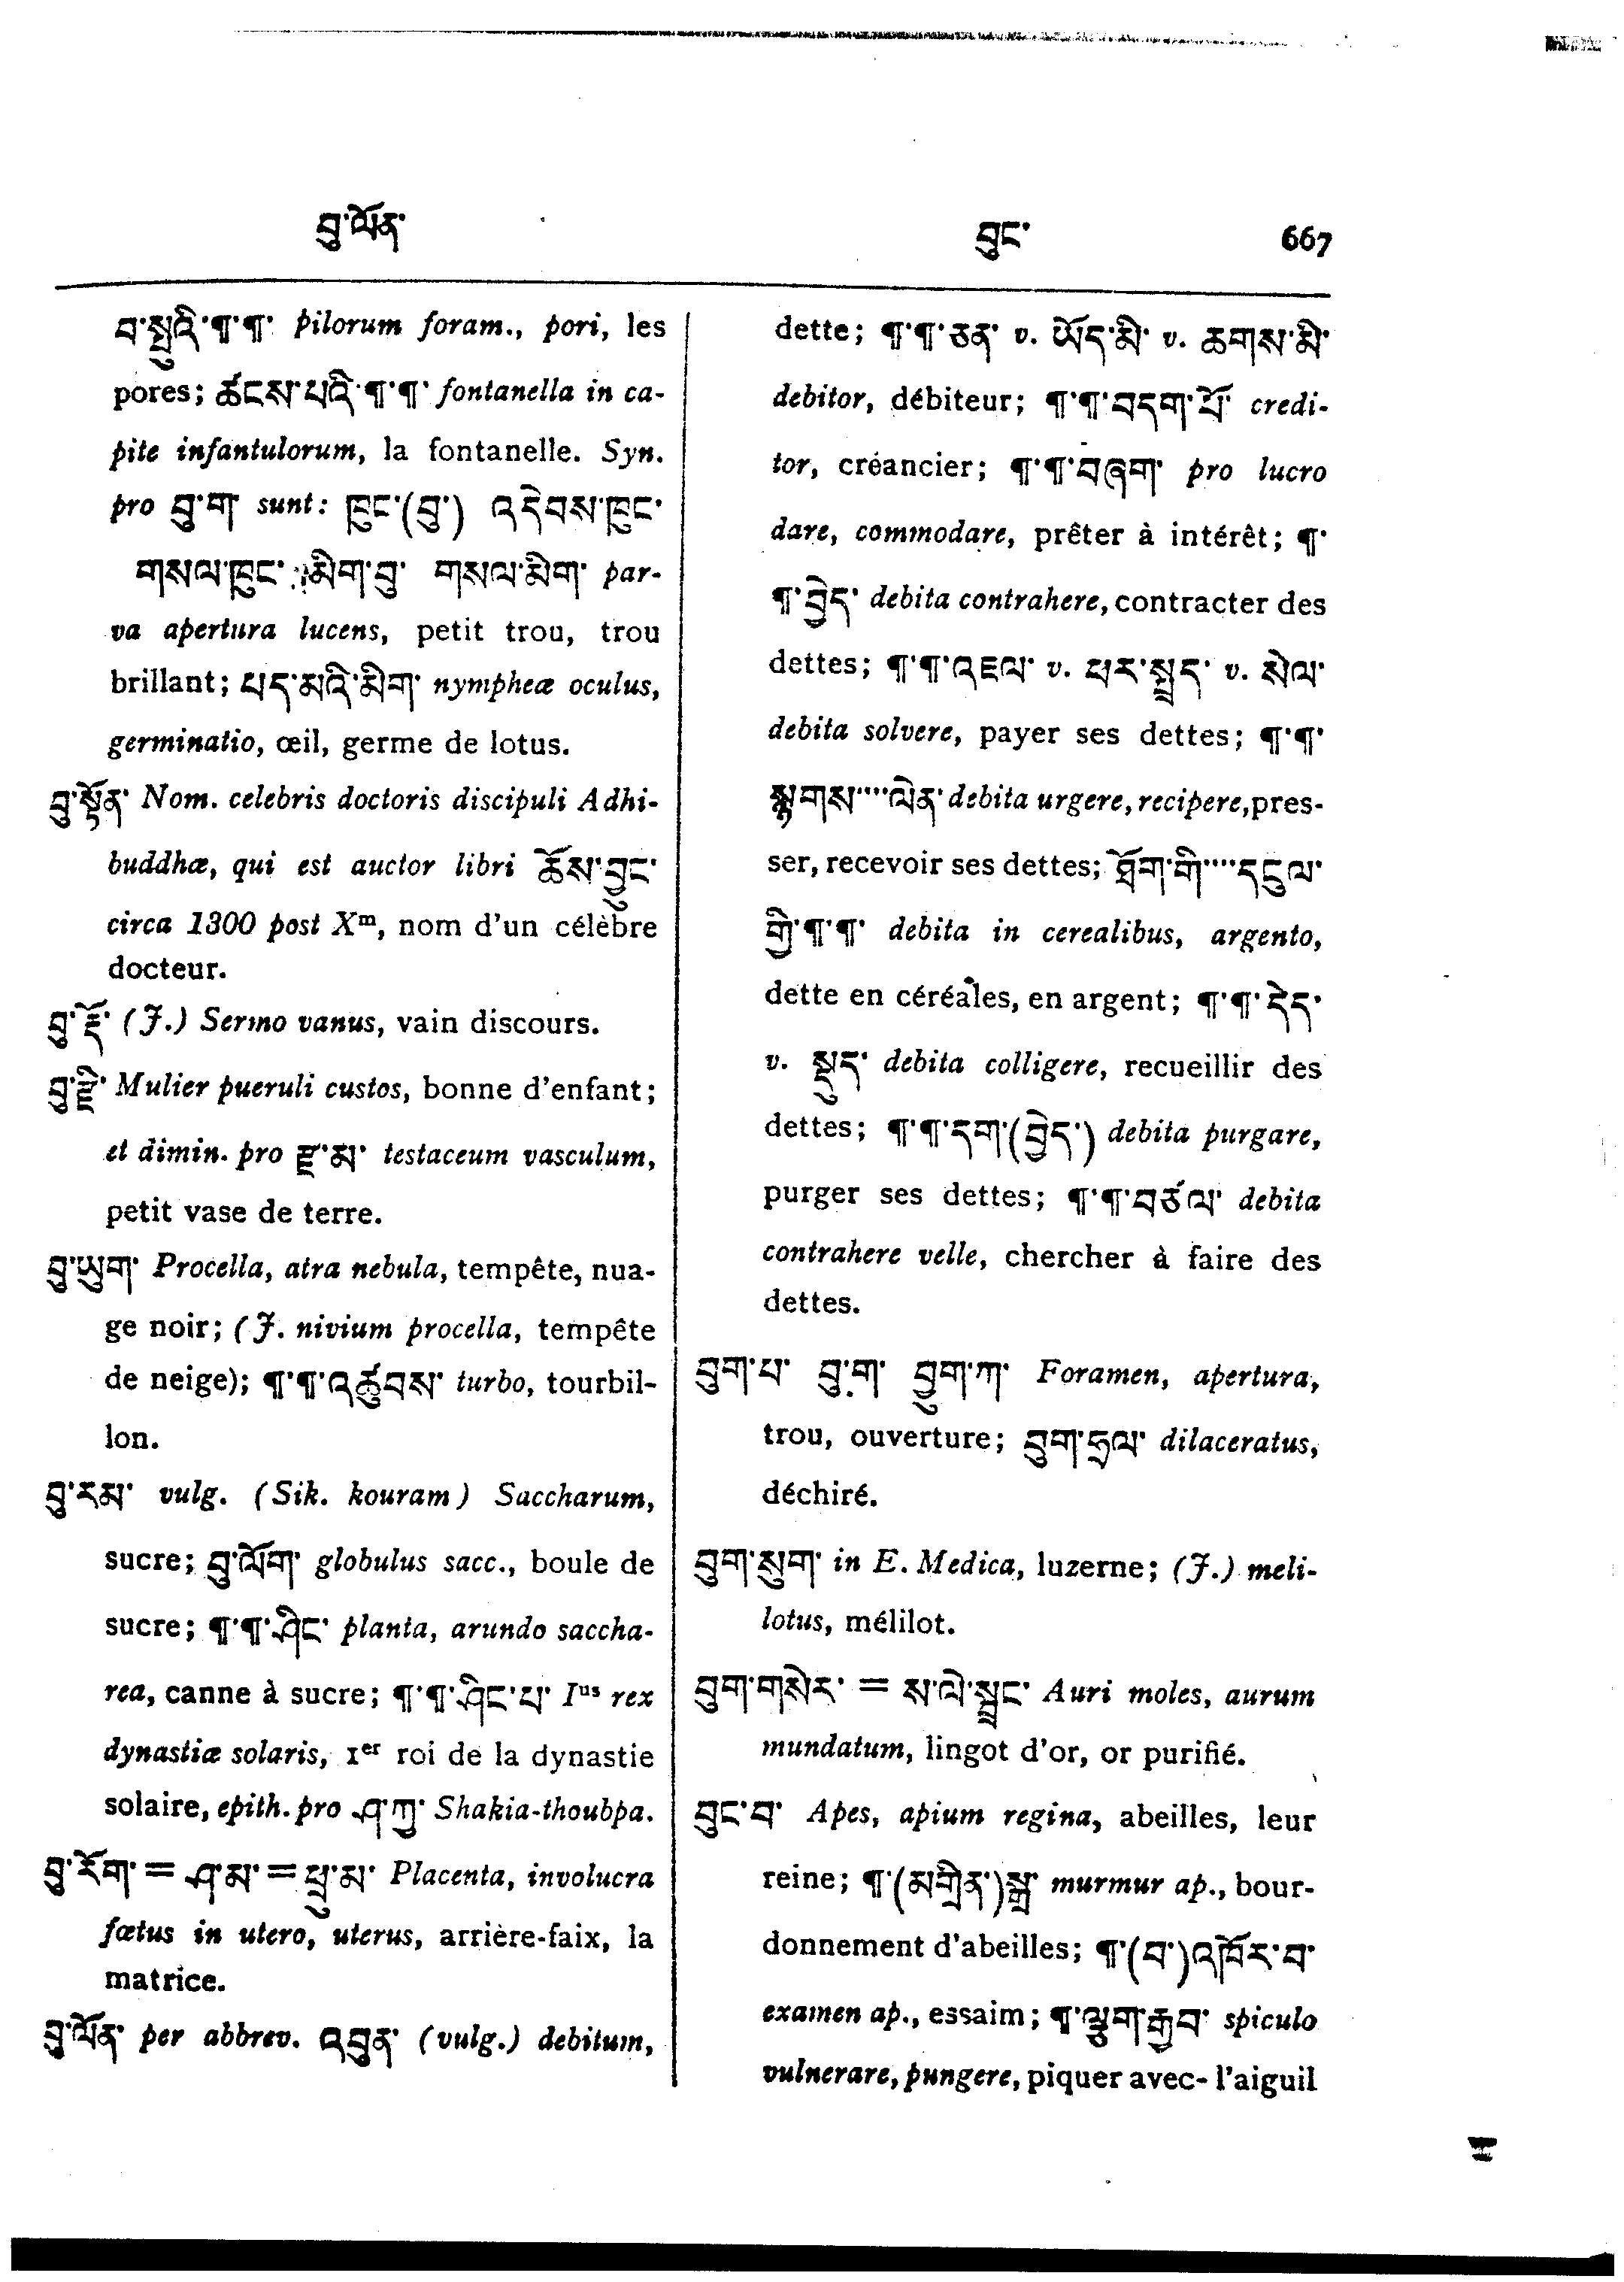 བུ་ལོན་
བུང་ 667
བ་སྤུའི་¶་¶་ pilorum foram., pori, les
pores; ཚངས་པའི་¶་¶་ fontanella in ca-
pite infantulorum, la fontanelle. Syn.
pro བུ་ག་ sunt: ཁུང་(བུ་) འདེབས་ཁུང་
གསལ་ཁུང་ མིག་བུ་ གསལ་མིག་ par-
va apertura lucens, petit trou, trou
brillant; པད་མའི་མིག་ nympheæ oculus,
germinatio, œil, germe de lotus.
བུ་སྟོན་ Nom. celebris doctoris discipuli Adhi-
buddhæ, qui est auctor libri ཆོས་བྱུང་
circa 1300 post Xᵐ, nom d'un célèbre
docteur.
བུ་རྡོ་ (J.) Sermo vanus, vain discours.
བུ་རྫི་ Mulier pueruli custos, bonne d'enfant;
et dimin. pro རྫ་མ་ testaceum vasculum,
petit vase de terre.
བུ་ཡུག་ Procella, atra nebula, tempête, nua-
ge noir; (J. nivium procella, tempête
de neige); ¶་¶་འཚུབས་ turbo, tourbil-
lon.
བུ་རམ་ vulg. (Sik. kouram) Saccharum,
sucre; བུ་ལོག་ globulus sacc., boule de
sucre; ¶་¶་ཤིང་ planta, arundo saccha-
rea, canne à sucre; ¶་¶་ཤིང་པ་ Iᵘˢ rex
dynastiæ solaris, 1ᵉʳ roi de la dynastie
solaire, epith. pro ཤ་ཀྱ་ Shakia-thoubpa.
བུ་རོག་ = ཤ་མ་ = ཕྲུ་མ་ Placenta, involucra
fœtus in utero, uterus, arrière-faix, la
matrice.
བུ་ལོན་ per abbrev. འབུན་ (vulg.) debitum,
dette; ¶་¶་ཅན་ v. ཡོད་མི་ v. ཆགས་མི་
debitor, débiteur; ¶་¶་བདག་པོ་ credi-
tor, créancier; ¶་¶་བཞག་ pro lucro
dare, commodare, prêter à intérêt; ¶་
¶་བྱེད་ debita contrahere, contracter des
dettes; ¶་¶་འཇལ་ v. ཕར་སྤྲད་ v. སེལ་
debita solvere, payer ses dettes; ¶་¶་
སྙགས་····ལེན་ debita urgere, recipere, pres-
ser, recevoir ses dettes; ཐོག་གི་····དངུལ་
གྱི་¶་¶་ debita in cerealibus, argento,
dette en céréales, en argent; ¶་¶་དེད་
v. སྡུད་ debita colligere, recueillir des
dettes; ¶་¶་དག་(བྱེད་) debita purgare,
purger ses dettes; ¶་¶་བཙལ་ debita
contrahere velle, chercher à faire des
dettes.
བུག་པ་ བུ་ག་ བྱུག་ཀ་ Foramen, apertura,
trou, ouverture; བུག་ཧྲལ་ dilaceratus,
déchiré.
བུག་སུག་ in E. Medica, luzerne; (J.) meli-
lotus, mélilot.
བུག་གསེར་ = ས་ལེ་སྦྲང་ Auri moles, aurum
mundatum, lingot d'or, or purifié.
བུང་བ་ Apes, apium regina, abeilles, leur
reine; ¶་(མགྲིན་)སྒྲ་ murmur ap., bour-
donnement d'abeilles; ¶་(བ་)འཁོར་བ་
examen ap., essaim; ¶་ལྕུག་རྒྱབ་ spiculo
vulnerare, pungere, piquer avec- l'aiguil